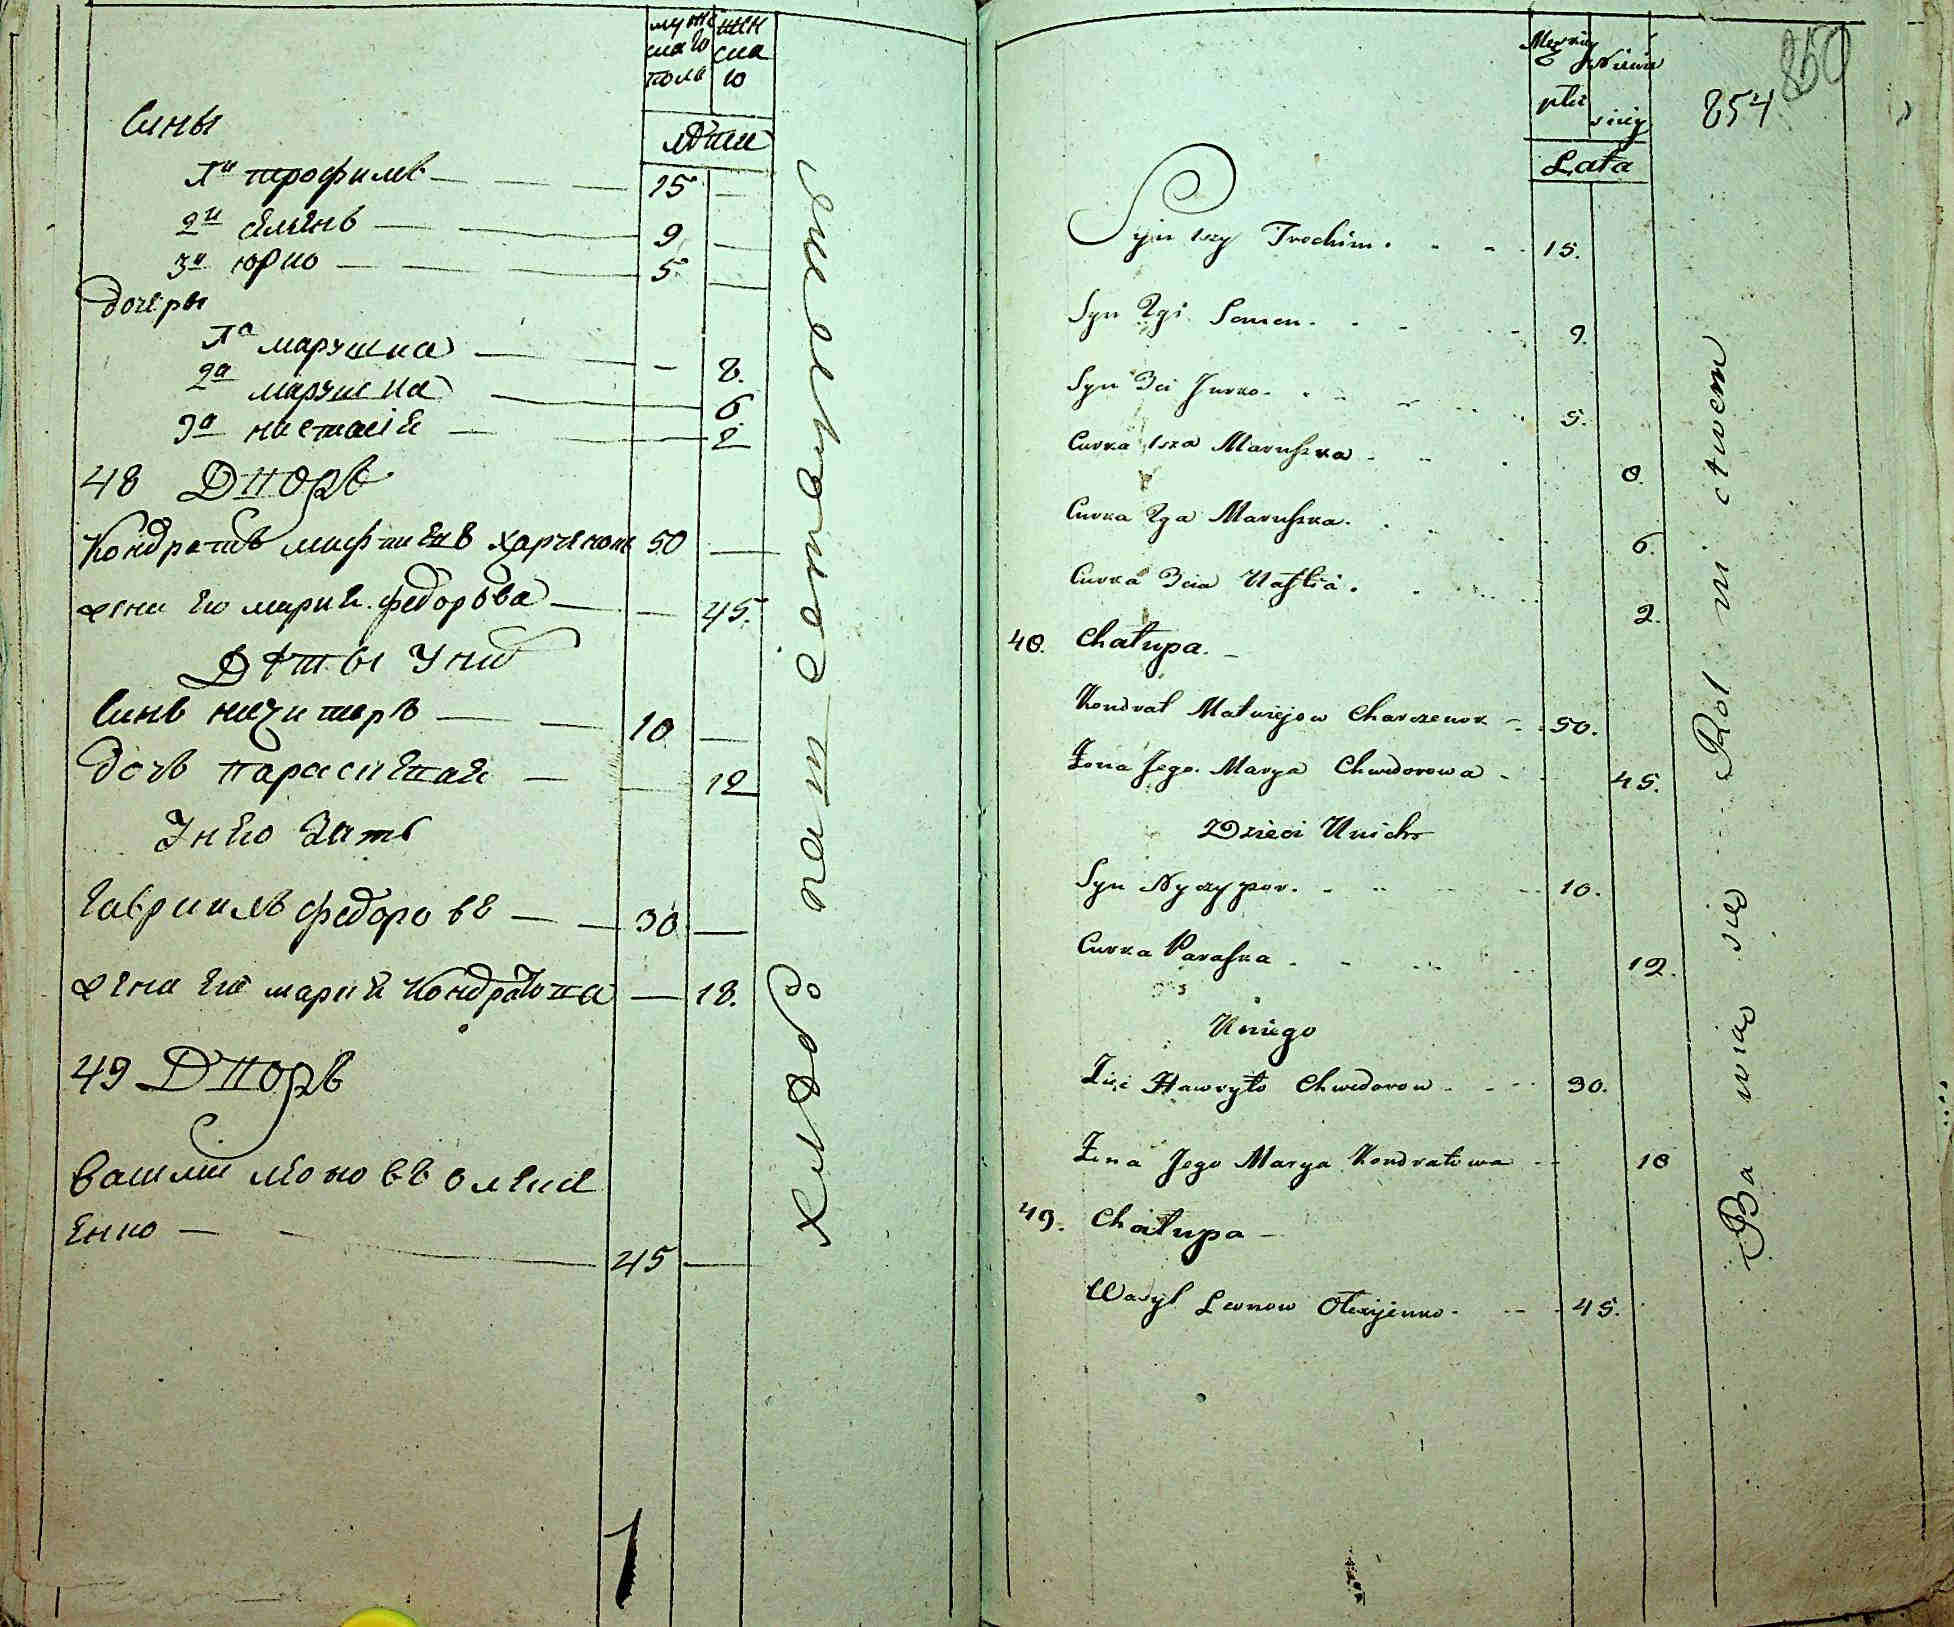 мужс
скаго
пола
жен
ска
го
лѣти
Сины
1й трофимъ 15
2й семенъ 9
3й юрко 5
дочеры
1а марушка 8.
2а марушка 6
3а настасіе 2
48 Дворъ
Кондратъ 50
жена его марие федорова 45.
Дѣты у них
Синъ ничипоръ 10
дочъ параскевие 12
у него зять
гаврилъ федоровъ 30
жена его марие кондратова 18.
49 Дворъ
василь
енко 45
хлибопашествомъ
Męzkiey
płci
Lata
854
850
Syn 1szy Trochim 15.
Syn 2gi Semen 9.
Syn 3ci Jurko 5.
Curka 1sza Maruszka 8.
Curka 2ga Maruszka 6.
Curka 3cia Nastia 2.
48. Chałupa.
Kondrat Matwiejow Charczenok 50.
Żona Jego Marya Chwedorowa 45.
Dzieci U nich
Syn Nyczypor 10.
Curka Paraska 12.
U niego
Zięć Hawryło Chwedorow 30.
Żona Jego Marya Kondratowa 18
49. Chałupa
Wasyl Leonow Olexijenko 45.
Ba wiąo się Rolnictwem